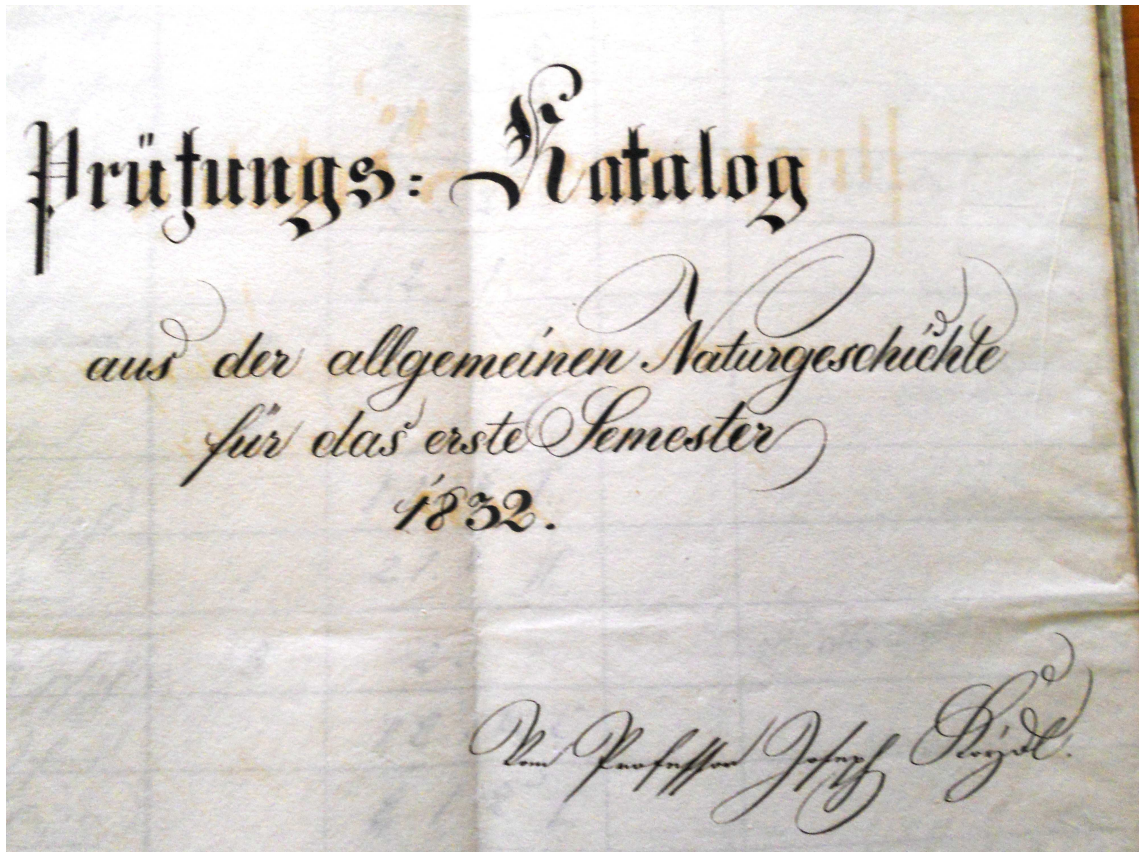 Prüfungs: Katalog
aus der allgemeinen Naturgeschichte
für das erste Semester
1832.
Vom Professor Joseph